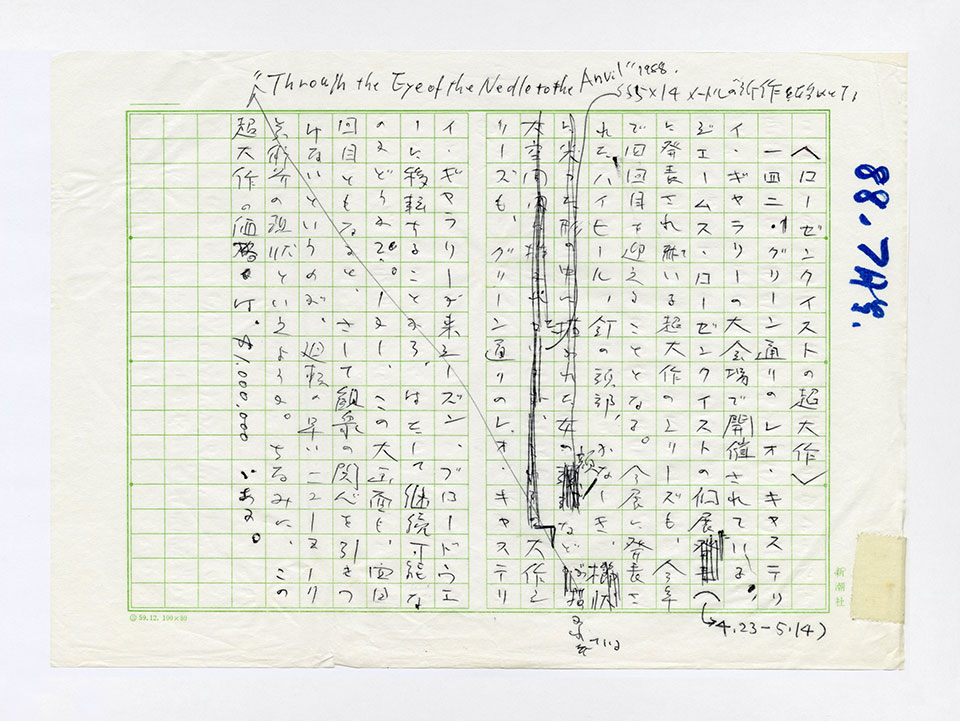 88.7月号
"Through the Eye of the Needle to the Anvil" 1988.
5×14メートルの新作
〈ローゼンクイストの超大作〉
一四二・グリーン通りのレオ・キャステリ
イ・ギャラリーの大会場で開催されている、
ジェームス・ローゼンクイストの個展
4.23-5.14)
に発表されている超大作のシリーズも、今年
で四回目を迎えることとなる。今展に発表さ
れた、ハイヒール、針の頭部、かなしき、
に尖った形の中に描かれた女の顔など
大空間 大作シ
リーズも、グリーン通りのレオ・キャステリ
イ・ギャラリーが来シーズン、ブロードウエ
ーに移転することから、はたして継続可能な
のかどうか?。しかし、この大画面も、四回
回目ともなると、さして観衆の関心を引きつ
けないというのが、廻転の早いニューヨーク
美術界の現状といえようか。ちなみに、この
超大作の価格は、$1,000,000である。
新潮社
59.12. 100×30